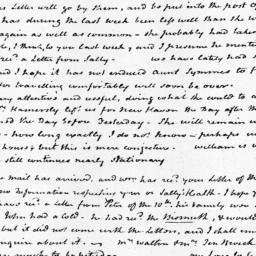 letter will go by them, and be put into the post of
has during the last week been left well than she w
again as well as common - she probably had taken
I think, to you last week, and I presume he menti
rec'd a letter from Sally - we have lately had s
nd I hope it has not induced Aunt Symmes to
or travelling comfortably will soon be over.
ery attentive and useful, doing what she could to
left us for New Haven the day after th
nd the day before Yesterday - She will remain w
- how long exactly I do not know - perhaps
house; but this is mere conjecture. William is
still continues nearly Stationary
mail has arrived, and Wm has rec'd your letter of the
no information respecting your or Sally's health - I hope
rec'd a letter from Peter of the 10th, his family were
John had a cold - he had rec'd the Bismuth, & would
but it did not come with the letters, and I shall
enquire about it. Mr Walton & Mr